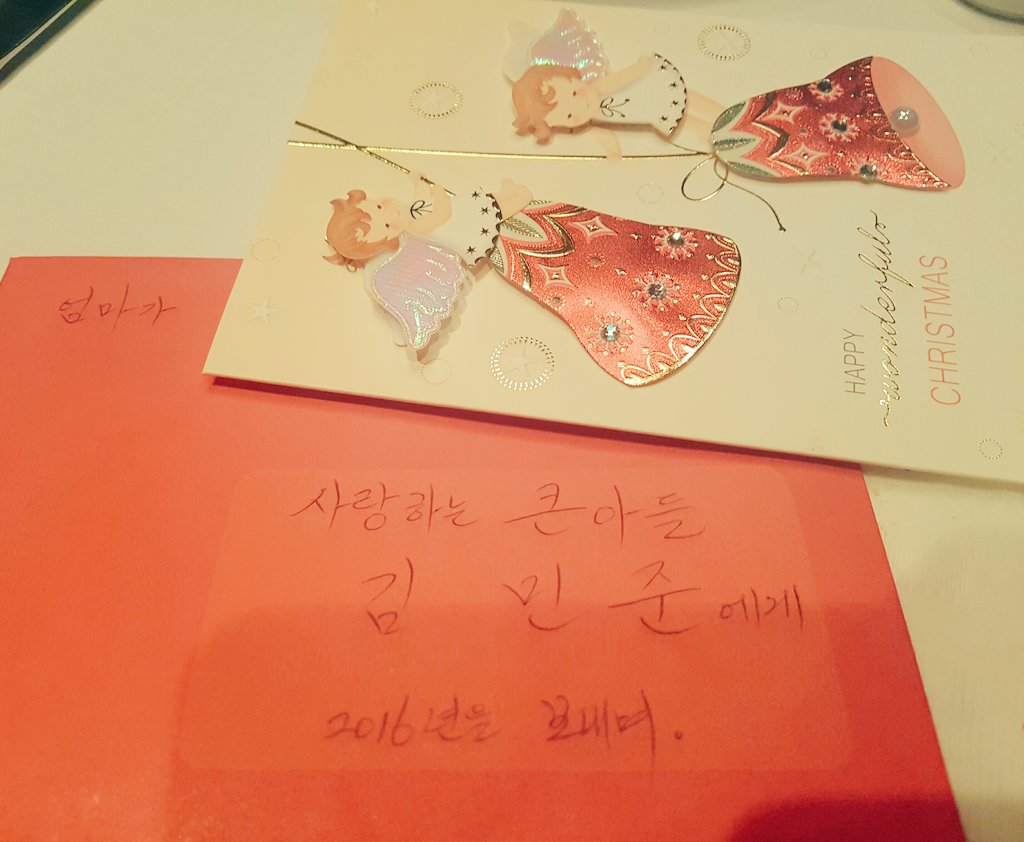 엄마가
사랑하는 큰아들
김 민 준 에게
2016년을 보내며.
HAPPY
wonderful
CHRISTMAS